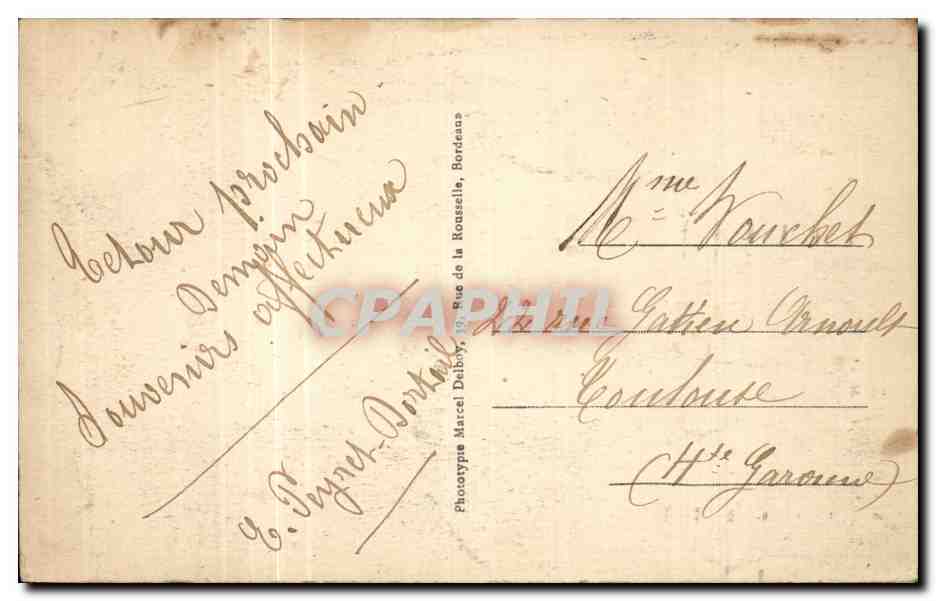 Retour prochain
Demain
Souvenirs affectueux
E. Peyret-Portail
Phototypie Marcel Delboy, 19, Rue de la Rousselle, Bordeaux
CPAPHIL
Mme Vouchet
rue Gatien Arnoult
Toulouse
(Hte Garonne)